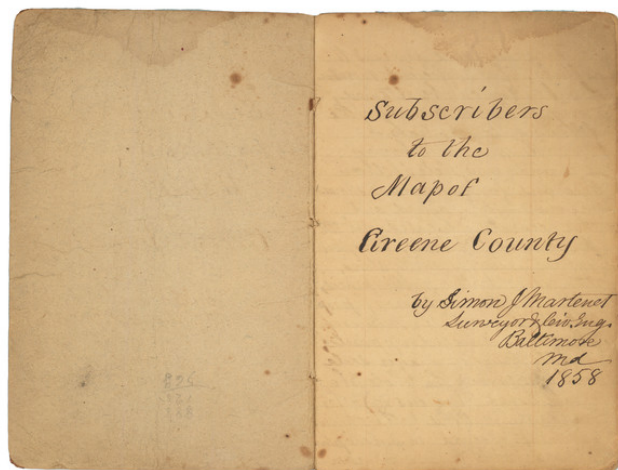 Subscribers
to the
Map of
Greene County
by Simon J Martenet
Surveyor & Civ. Eng.
Baltimore
Md
1858